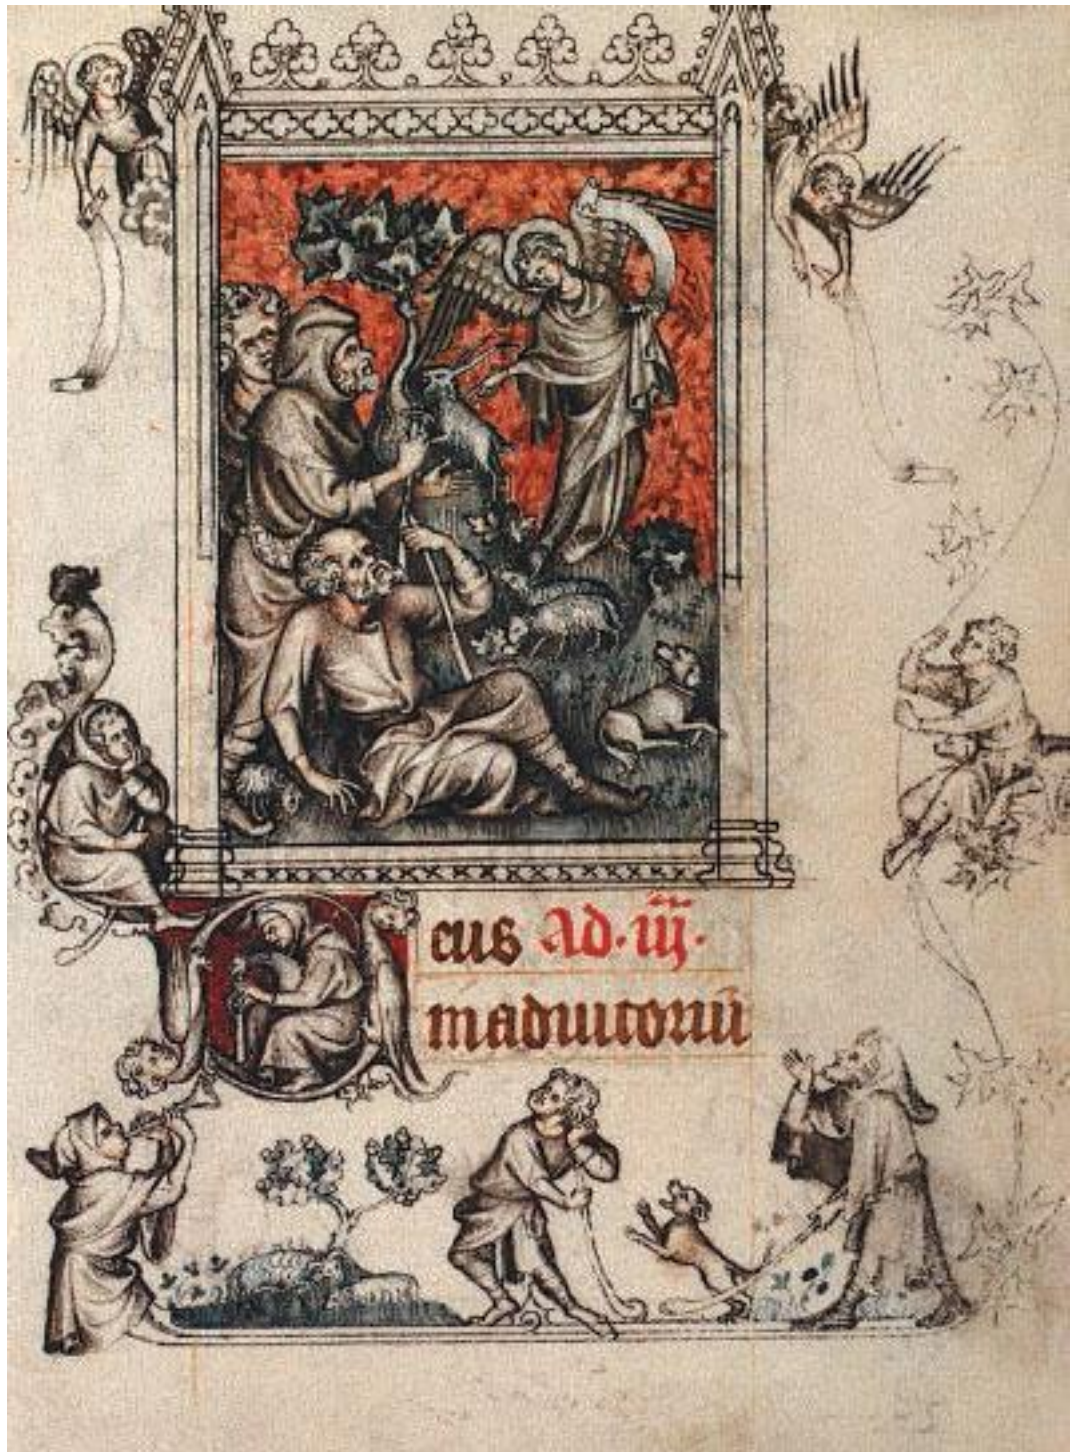 Deus Ad·iij·
inadiutoriū